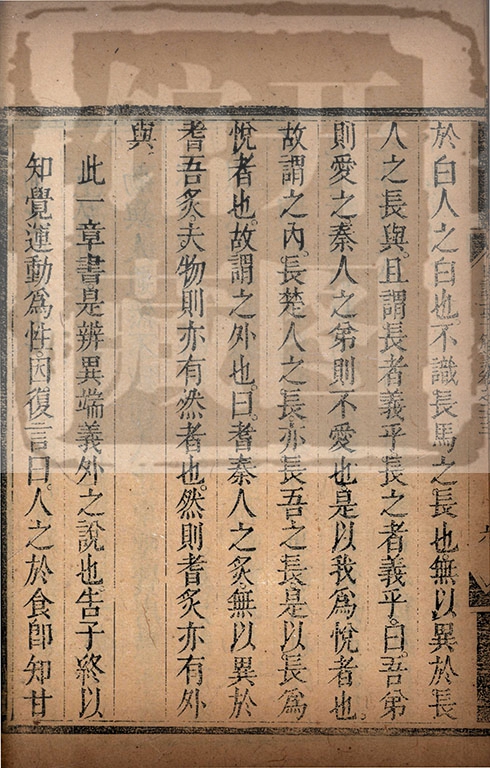 於白人之白也不識長馬之長也無以異於長
人之長與且謂長者義乎長之者義乎曰吾弟
則愛之秦人之弟則不愛也是以我爲悅者也
故謂之內長楚人之長亦長吾之長是以長爲
悅者也故謂之外也曰耆秦人之炙無以異於
耆吾炙夫物則亦有然者也然則耆炙亦有外
與
此一章書是辨異端義外之說也告子終以
知覺運動爲性因復言曰人之於食卽知甘